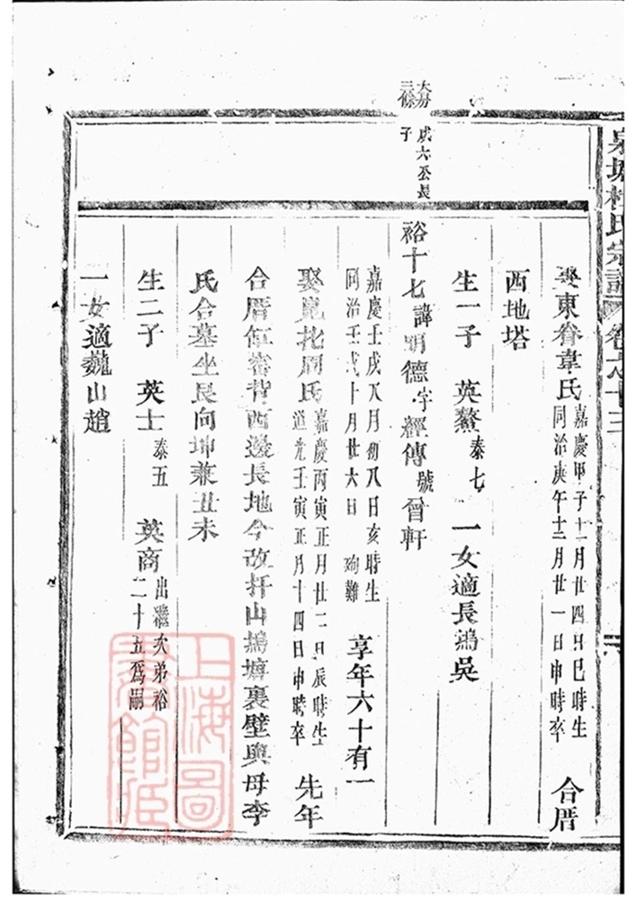 泉塘楊氏宗譜 卷之十三
娶東眷韋氏 嘉慶甲子十一月廿四日巳時生
同治庚午十二月廿一日申時卒 合厝
西地塔
生一子 英鰲 泰七 一女適長鴻吳
大房三條
戊六公長子
裕十七諱明德字經傳號晉軒
嘉慶壬戌八月初八日亥時生
同治壬戌十月廿六日 殉難 享年六十有一
娶昆北周氏 嘉慶丙寅正月廿二日辰時生
道光壬寅正月十四日申時卒 先年
合厝 背西邊長地今改扦山 塘裏壁與母李
氏合墓坐艮向坤兼丑未
生二子 英士 泰五 英商 出繼次弟裕
二十五為嗣
一女適巍山趙
上海圖書館藏